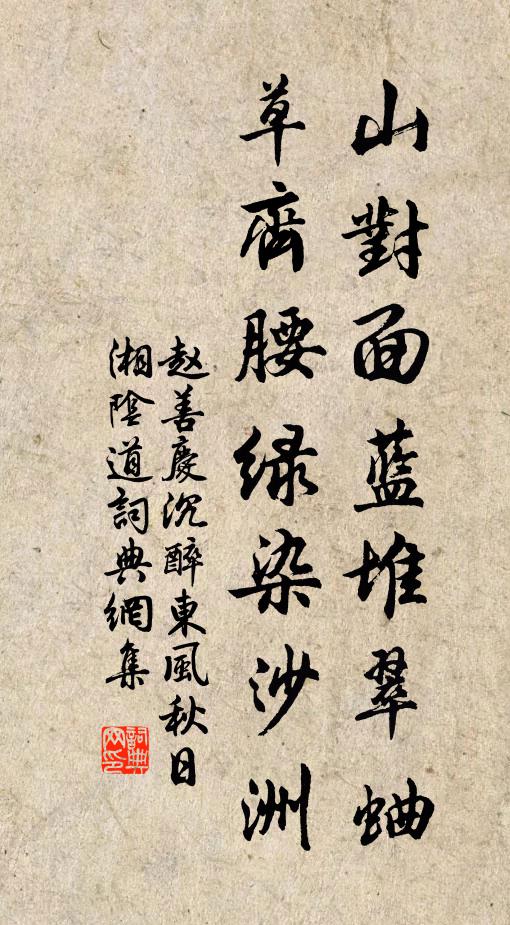 山對面藍堆翠岫
草齊腰绿染沙洲
赵善慶沉醉東風秋日
湘陰道詞典網集
詞典网印